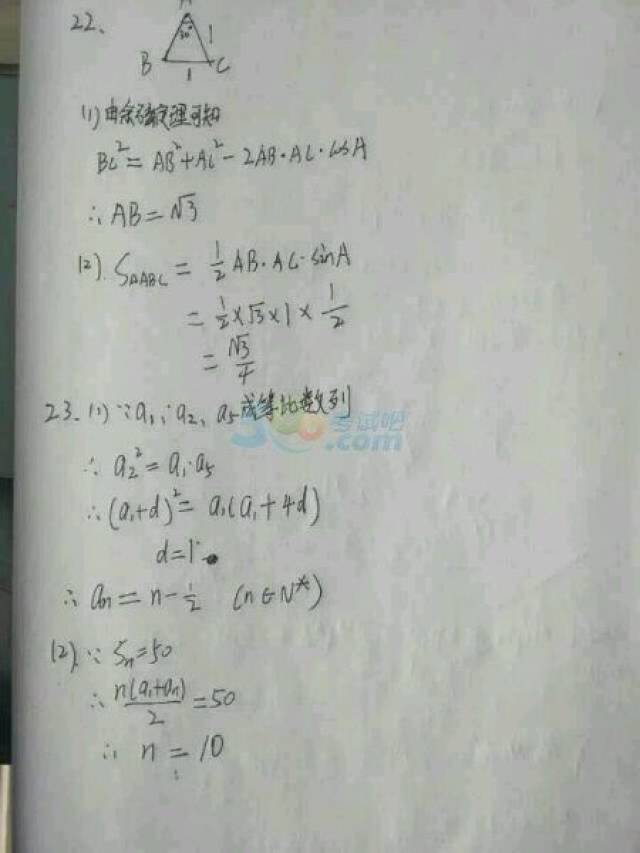 22、
A
30°
1
B
C
1
(1) 由余弦定理可知
BC²=AB²+AC²-2AB·AC·cosA
∴AB=√3
(2). S△ABC = 1/2 AB·AC·sinA
= 1/2×√3×1×1/2
= √3/4
23. (1) ∵a₁, a₂, a₅成等比数列
考试吧
.com
∴ a₂²=a₁·a₅
∴(a₁+d)²=a₁(a₁+4d)
d=1
∴ an=n-1/2 (n∈N*)
(2). ∵ Sn=50
∴ n(a₁+an)/2=50
∴ n=10